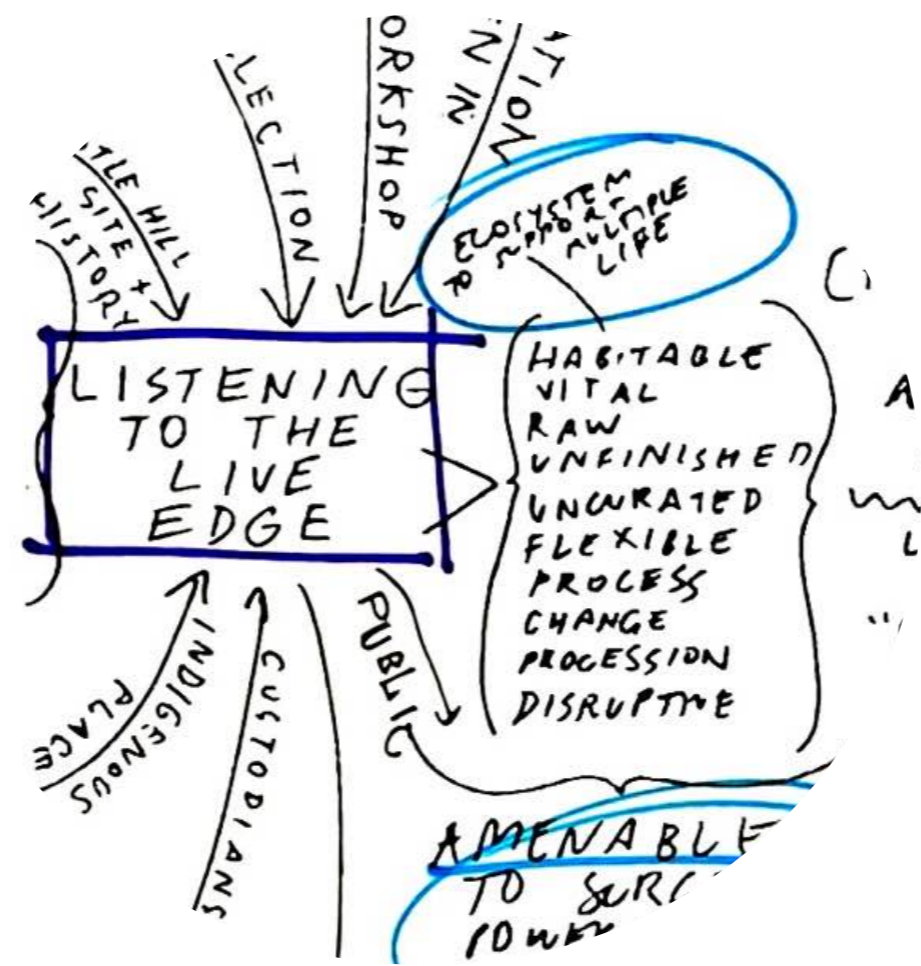 ORKSHOP
N IN
ATION
LECTION
TLE HILL
SITE +
HISTORY
ECOSYSTEM
OR SUPPORT
MULTIPLE
LIFE
LISTENING
TO THE
LIVE
EDGE
HABITABLE
VITAL
RAW
UNFINISHED
UNCURATED
FLEXIBLE
PROCESS
CHANGE
PROCESSION
DISRUPTIVE
A
L
INDIGENOUS
PLACE
CUSTODIANS
PUBLIC
AMENABLE
TO
POWER